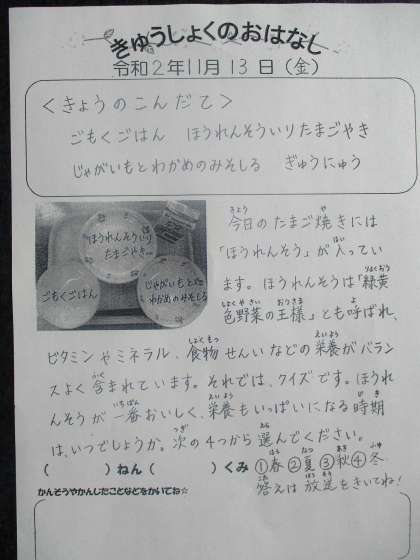 きゅうしょくのおはなし
令和2年11月13日(金)
<きょうのこんだて>
ごもくごはん ほうれんそういりたまごやき
じゃがいもとわかめのみそしる ぎゅうにゅう
ほうれんそういり
たまごやき
ごもくごはん
じゃがいもと
わかめのみそしる
今日のたまご焼きには
「ほうれんそう」が入ってい
ます。ほうれんそうは「緑黄
色野菜の王様」とも呼ばれ、
ビタミンやミネラル、食物せんいなどの栄養がバラン
スよく含まれています。それでは、クイズです。ほうれ
んそうが一番おいしく、栄養もいっぱいになる時期
は、いつでしょうか。次の4つから選んでください。
( )ねん( )くみ ①春②夏③秋④冬
答えは放送をきいてね!
かんそうやかんじたことなどをかいてね☆